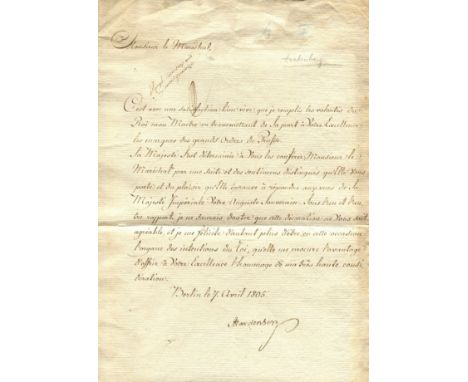 Monsieur le Maréchal,
C'est avec une satisfaction bien vive que je remplis les volontés du
Roi mon Maître en transmettant de Sa part à Votre Excellence
les marques des grands Ordres de Prusse.
Sa Majesté s'est déterminée à Vous les conférer, Monsieur le
Maréchal par une suite et des sentimens distingués qu'Elle Vous
porte, et du plaisir qu'Elle trouve à répondre aux vues de Sa
Majesté Impériale Votre Auguste Souverain. Sous l'un et l'au-
tre rapport, je ne saurais douter que cette démarche ne Vous soit
agréable, et je me félicite d'autant plus d'être en cette occasion
l'organe des intentions du Roi, qu'elle me procure l'avantage
d'offrir à Votre Excellence l'hommage de ma très haute consi-
dération.
Berlin le 7. Avril 1805.
Hardenberg